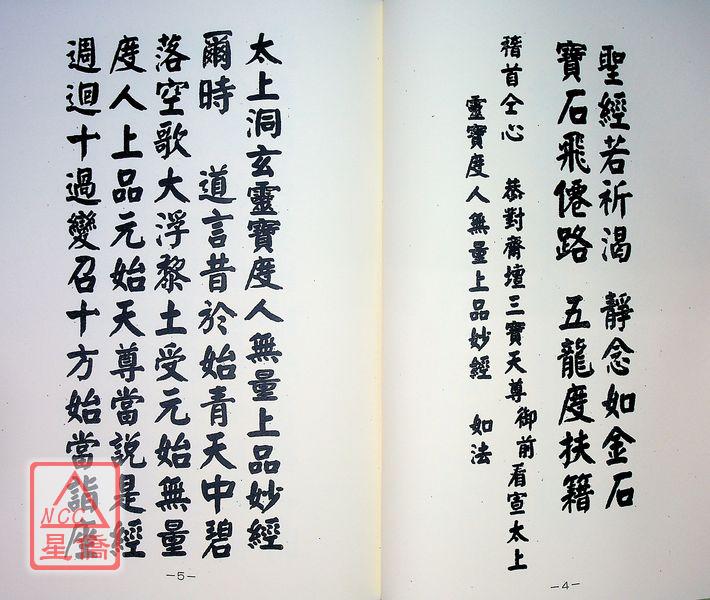 聖經若祈渴　靜念如金石
寶石飛僊路　五龍度扶籍
稽首仝心　恭對齋壇三寶天尊御前看宣太上
靈寶度人無量上品妙經　如法
-4-
太上洞玄靈寶度人無量上品妙經
爾時　道言昔於始青天中碧
落空歌大浮黎土受元始無量
度人上品元始天尊當說是經
週迴十過變召十方始當詣座
-5-
NCC
星僑